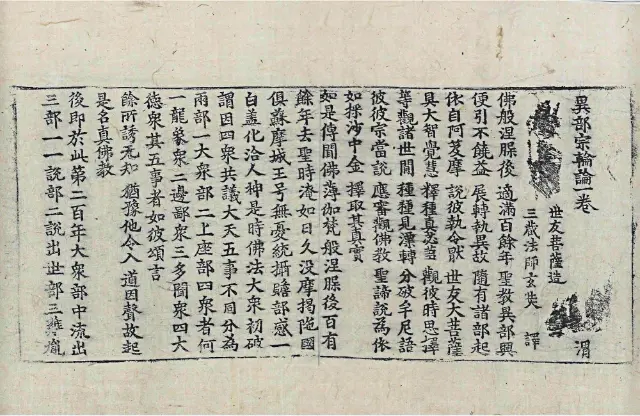 異部宗輪論卷
世友菩薩造
三藏法師玄奘 譯
渭
佛般涅槃後 適滿百餘年 聖教異部興
便引不饒益 展轉執異故 隨有諸部起
依自阿笈摩 說彼執令猒 世友大菩薩
具大智覺慧 釋種真苾蒭 觀彼時思擇
等觀諸世間 種種見漂轉 分破牟尼語
彼彼宗當說 應審觀佛教 聖諦說為依
如採沙中金 擇取其真實
如是傳聞佛薄伽梵般涅槃後百有
餘年去聖時淹如日久没摩揭陁國
俱蘇摩城王号無憂統攝贍部感一
白盖化洽人神是時佛法大衆初破
謂因四衆共議大天五事不同分為
兩部一大衆部二上座部四衆者何
一龍象衆二邊鄙衆三多聞衆四大
德衆其五事者如彼頌言
餘所誘無知 猶豫他令入 道因聲故起
是名真佛教
後即於此第二百年大衆部中流出
三部一一說部二說出世部三雞胤